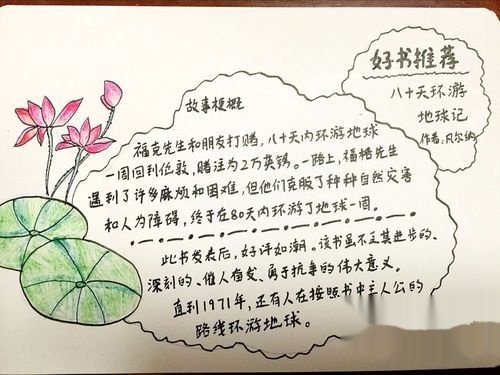 好书推荐
八十天环游
地球记
作者:凡尔纳
故事梗概
福克先生和朋友打赌，八十天内环游地球
一周回到伦敦，赌注为2万英镑。一路上，福格先生
遇到了许多麻烦和困难，但他们克服了种种自然灾害
和人为障碍，终于在80天内环游了地球一周。
此书发表后，好评如潮。该书虽不乏其进步的、
深刻的、催人奋发、勇于抗争的伟大意义。
直到1971年，还有人在按照书中主人公的
路线环游地球。